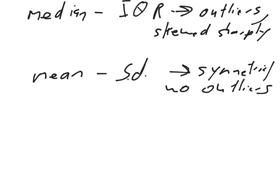 median - IQR → outliers,
skewed sharply
mean - S.d. → symmetric/
no outliers